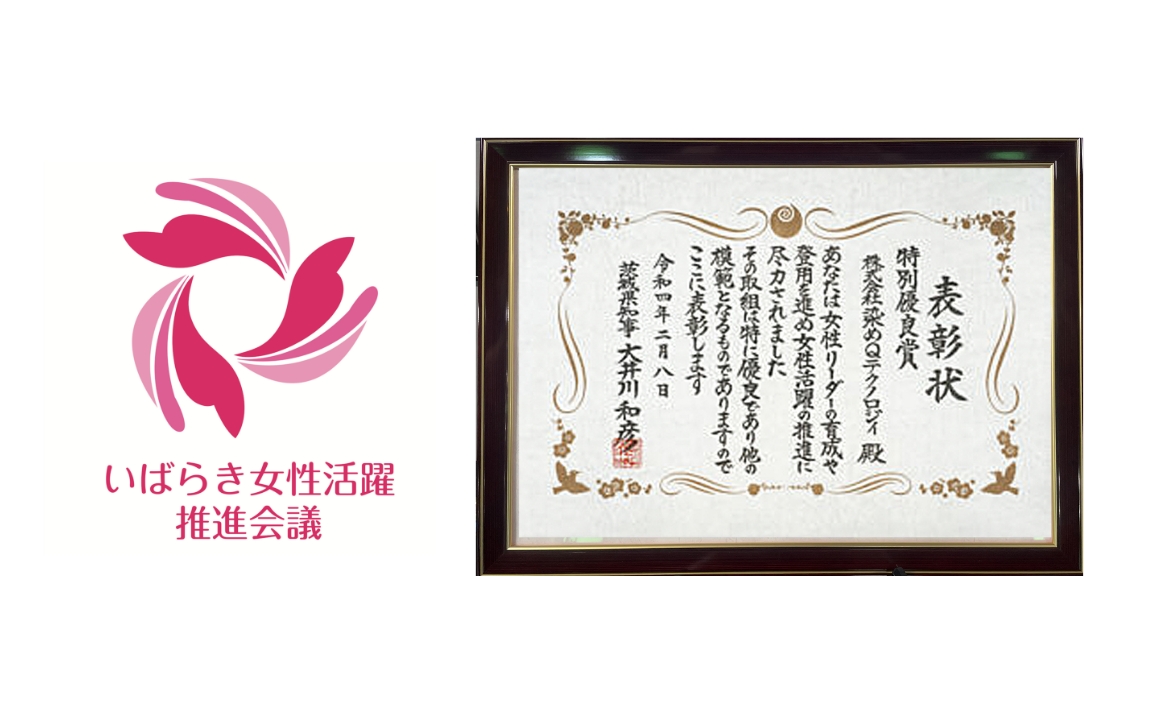 いばらき女性活躍
推進会議
表彰状
特別優良賞
株式会社染めQテクノロジィ 殿
あなたは女性リーダーの育成や
登用を進め女性活躍の推進に
尽力されました
その取組は特に優良であり他の
模範となるものでありますので
ここに表彰します
令和四年二月八日
茨城県知事 大井川和彦